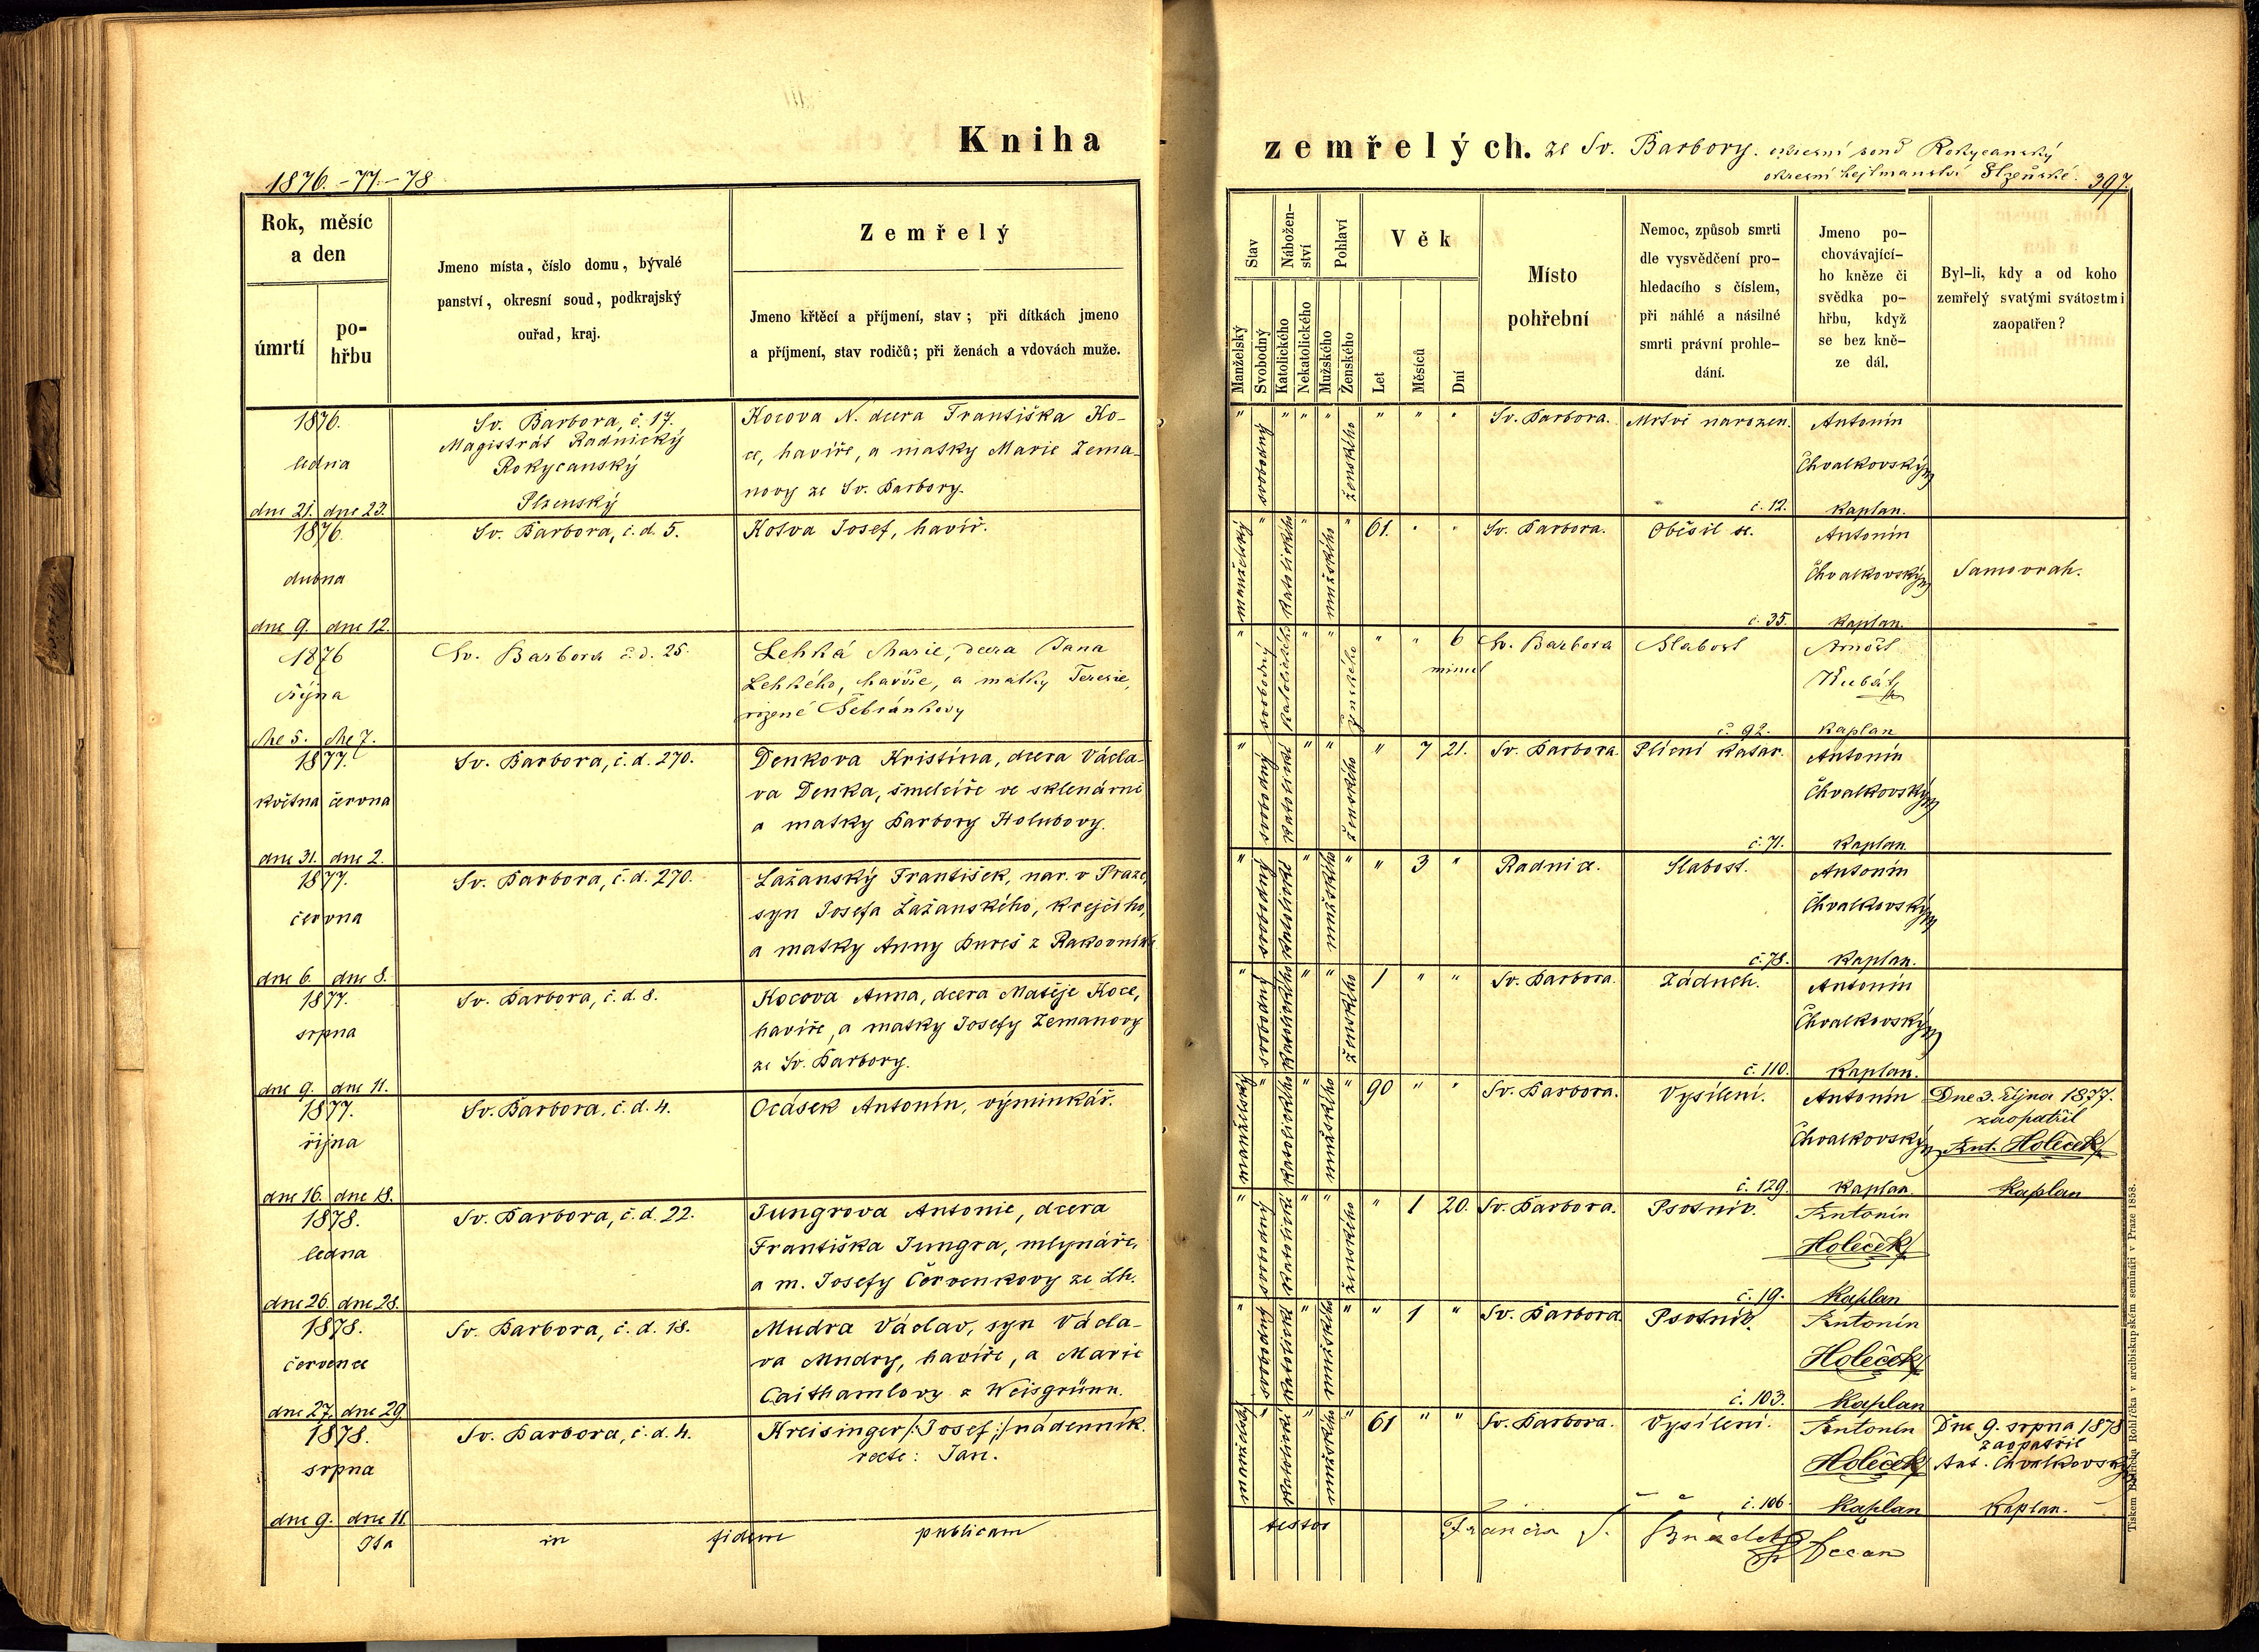 Kniha
zemřelých. ze Sv. Barbory. okresní soud Rokycanský
okresní hejtmanství Plzeňské. 397.
1876.-77.-78
Rok, měsíc
a den
úmrtí
po-
hřbu
Jmeno místa, číslo domu, bývalé
panství, okresní soud, podkrajský
ouřad, kraj.
Zemřelý
Jmeno křtěcí a příjmení, stav; při dítkách jmeno
a příjmení, stav rodičů; při ženách a vdovách muže.
Stav
Manželský
Svobodný
Nábožen-
ství
Katolického
Nekatolického
Pohlaví
Mužského
Ženského
Věk
Let
Měsíců
Dní
Místo
pohřební
Nemoc, způsob smrti
dle vysvědčení pro-
hledacího s číslem,
při náhlé a násilné
smrti právní prohle-
dání.
Jmeno po-
chovávající-
ho kněze či
svědka po-
hřbu, když
se bez kně-
ze dál.
Byl-li, kdy a od koho
zemřelý svatými svátostmi
zaopatřen?
1876.
ledna
dne 21. dne 23.
Sv. Barbora, č. 17.
Magistrát Radnický
Rokycanský
Plzenský
Kocova N. dcera Františka Ko-
ce, havíře, a matky Marie Zema-
novy ze Sv. Barbory.
" svobodný " " " ženského " " "
Sv. Barbora.
Mrtvě narozen.
č. 12.
Antonín
Chvalkovský
kaplan.
1876.
dubna
dne 9. dne 12.
Sv. Barbora, č. d. 5.
Kotva Josef, havíř.
manželský " katolického mužského " 61. " "
Sv. Barbora.
Oběsil se.
č. 35.
Antonín
Chvalkovský
kaplan.
Samovrah.
1876
října
dne 5. dne 7.
Sv. Barbora č. d. 25.
Lehká Marie, dcera Jana
Lehkého, havíře, a matky Terezie,
rozené Šebránkovy
" svobodný katolického " " ženského " " 6
minut
Sv. Barbora
Slabost
č. 92.
Arnošt
Kubát
kaplan
1877.
května června
dne 31. dne 2.
Sv. Barbora, č. d. 270.
Denkova Kristína, dcera Václa-
va Denka, šmelcíře ve sklenárně
a matky Barbory Holubovy.
" svobodný katolické " " ženského " 7 21.
Sv. Barbora.
Plícní katar.
č. 71.
Antonín
Chvalkovský
kaplan.
1877.
června
dne 6. dne 8.
Sv. Barbora, č. d. 270.
Lažanský František, nar. v Praze,
syn Josefa Lažanského, krejčího,
a matky Anny Bureš z Rakovníka
" svobodný katolické " mužského " " 3 "
Radnice.
Slabost.
č. 78.
Antonín
Chvalkovský
kaplan.
1877.
srpna
dne 9. dne 11.
Sv. Barbora, č. d. 8.
Kocova Anna, dcera Matěje Koce,
havíře, a matky Josefy Zemanovy
ze Sv. Barbory.
" svobodný katolického " " ženského 1 " "
Sv. Barbora.
Záduch.
č. 110.
Antonín
Chvalkovský
kaplan.
1877.
října
dne 16. dne 18.
Sv. Barbora, č. d. 4.
Ocásek Antonín, výminkář.
manželský " katolického " mužského " 90 " "
Sv. Barbora.
Vysílení.
č. 129.
Antonín
Chvalkovský
kaplan.
Dne 3. října 1877.
zaopatřil
Ant. Holeček
kaplan
1878.
ledna
dne 26. dne 28.
Sv. Barbora, č. d. 22.
Jungrova Antonie, dcera
Františka Jungra, mlynáře,
a m. Josefy Červenkovy ze Lh.
" svobodný katolické " " ženského " 1 20.
Sv. Barbora.
Psotník.
č. 19.
Antonín
Holeček
kaplan
1878.
července
dne 27. dne 29.
Sv. Barbora, č. d. 18.
Mudra Václav, syn Václa-
va Mudry, havíře, a Marie
Caithamlovy z Weisgrünn.
" svobodný katolické " mužského " " 1 "
Sv. Barbora.
Psotník.
č. 103.
Antonín
Holeček
kaplan
1878.
srpna
dne 9. dne 11.
Sv. Barbora, č. d. 4.
Kreisinger /:Josef:/ nádenník.
recte: Jan.
manželský " katolické mužského " 61 " "
Sv. Barbora.
Vysílení.
č. 106.
Antonín
Holeček
kaplan
Dne 9. srpna 1878
zaopatřil
Ant. Chvalkovský
kaplan.
Ita in fidem publicam testor
Decan
Tiskem Bedřicha Rohlíčka v arcibiskupském semináři v Praze 1858.